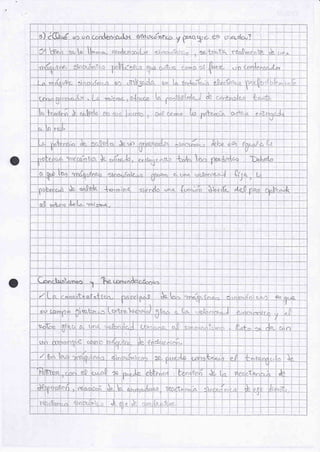 5) ¿Qué es un condensador síncrono y para que es usado?
Si bien se le llama condensador síncrono, se trata realmente de una
máquina síncrona polifásica que actúa como si fuese un condensador
La máquina síncrona es utilizada en la industria eléctrica
como generador. La misma, ofrece la posibilidad de controlar tanto
la tensión de salida en sus bornes, así como la potencia activa entregada
a la red.
La potencia de salida de un generador síncrono debe ser igual a la
potencia mecánica de entrada, exceptuando todas las pérdidas. Debido
a que las máquinas síncronas giran a una velocidad fija, la
potencia de salida termina siendo una función directa del par aplicado
al rotor de la misma.
Conclusiones y Recomendaciones
✓ La característica principal de las máquinas síncronas es que
su campo giratorio gira a la velocidad sincronismo y el
rotor gira a una velocidad cercana al sincronismo. Esto se da con
un arranque como máquina de inducción.
✓ En las máquinas síncronas se puede construir el triángulo de
Potier, con el cual se puede obtener tensión de la reactancia de
dispersión, reacción de la armadura, reactancia síncrona de eje directo,
reactancia síncrona de eje de cuadratura